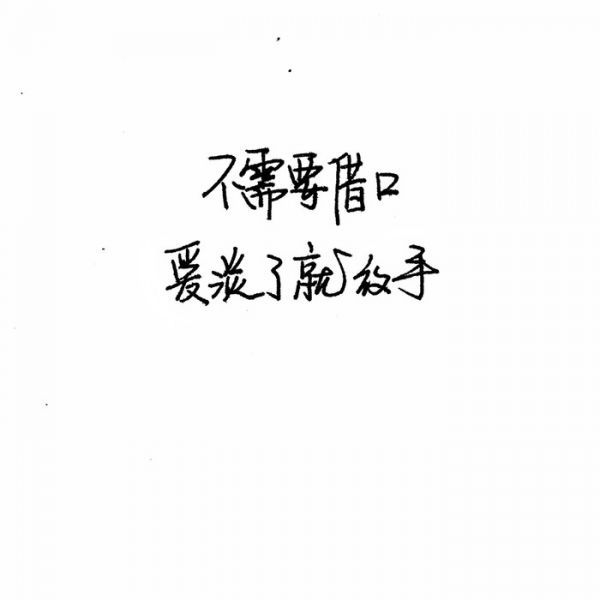 不需要借口
爱淡了就放手